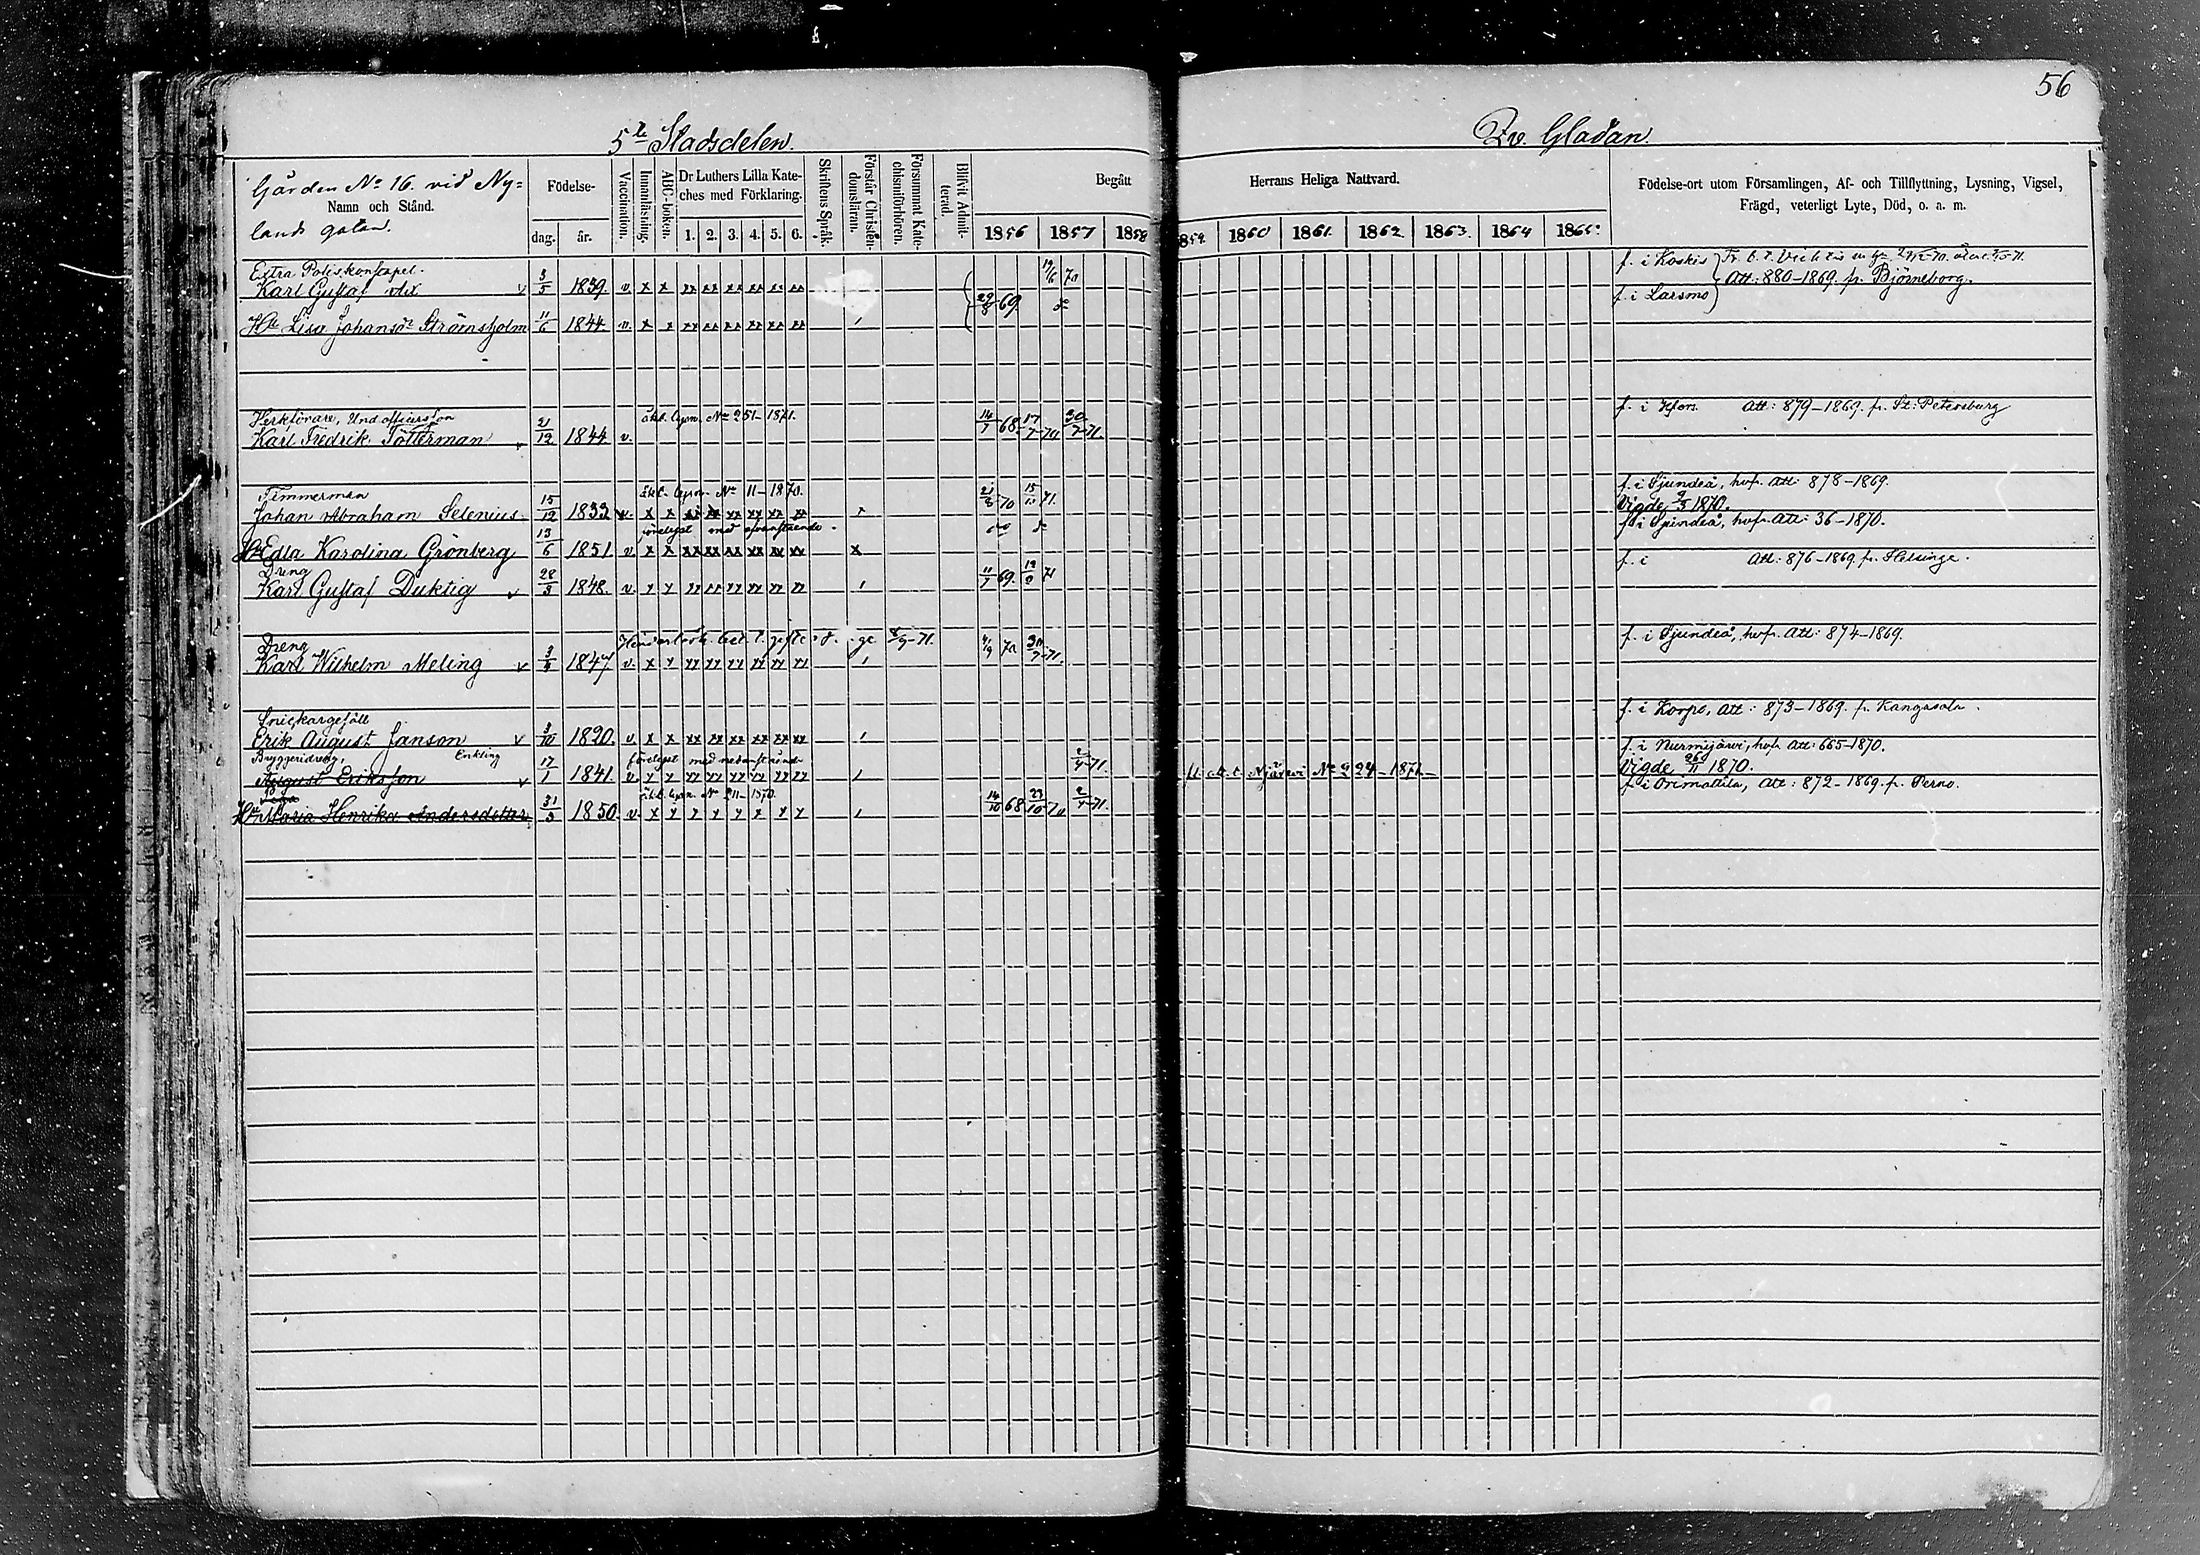 56
5te Stadsdelen.
Qv. Gladan.
Gården No 16. vid Ny=
Namn och Stånd.
lands gatan.
Födelse-
dag. år.
Vaccination.
Innanläsning.
ABC-boken.
Dr Luthers Lilla Kate-
ches med Förklaring.
1. 2. 3. 4. 5. 6.
Skriftens Språk.
Förstår Christen-
domsläran.
Försummat Kate-
chismiförhören.
Blifvit Admit-
terad.
Begått
Herrans Heliga Nattvard.
1856 1857 1858 1859 1860 1861 1862 1863 1864 1865
Födelse-ort utom Församlingen, Af- och Tillflyttning, Lysning, Vigsel,
Frägd, veterligt Lyte, Död, o. a. m.
Extra Poliskonstapel.
Karl Gustaf 3/5 1839. v x x xx xx xx xx xx xx 19/6 70 f. i Koskis
Att: 880-1869. fr. Björneborg.
Hu Lisa Johansdr Strömsholm 11/6 1844 v. x x xx xx xx xx xx xx 69. f. i Larsmo
Verkförare, Undofficersson
Karl Fredrik Tötterman v 21/12 1844 v. äkt. lysn. No 251-1871. 14/7 68 17/7-70 30/7-71. f. i Hfors. Att: 879-1869. fr. St: Petersburg
Timmerman äkt. lysn. No 11-1870.
Johan Abraham Selenius. 15/12 1833 v. x x xx xx xx xx xx xx 21/8-70 71. f. i Sjundeå, hvfr. Att: 878-1869.
Vigde 9/3 1870.
Hu Edla Karolina Grönberg 13/6 1851 v. x x xx xx xx xx xx xx x f. i Sjundeå, hvfr. Att: 36-1870.
Dreng
Karl Gustaf Duktig v 28/3 1848. v. 11/7 69. 71 f. i Att: 876-1869. fr. Helsinge.
Dreng
Karl Wilhelm Meling v 1847 v. x 70 30/7-71. f. i Sjundeå, hvfr. Att: 874-1869.
Snickargesäll
Erik August Janson v 3/10 1820. v x x xx xx xx xx xx xx f. i Korpo, Att: 873-1869. fr. Kangasala.
Bryggeridreng, Enkling
August Eriksson v 17/1 1841. v. 2/4-71. No 224-1871 f. i Nurmijärvi, hvfr. Att: 665-1870.
Vigde 1870.
äkt. lysn. No 211-1870.
Hu Maria Henrika Andersdotter 31/3 1850. v. 14/10 68 23/10-70 2/4-71. f. i Orimattila, Att: 872-1869. fr. Perno.